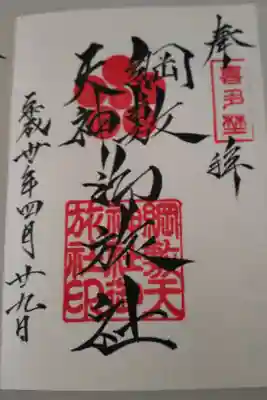 奉拝
喜多埜
綱敷
天神
御旅社
綱敷天
神社御
旅社印
平成廿年四月廿九日